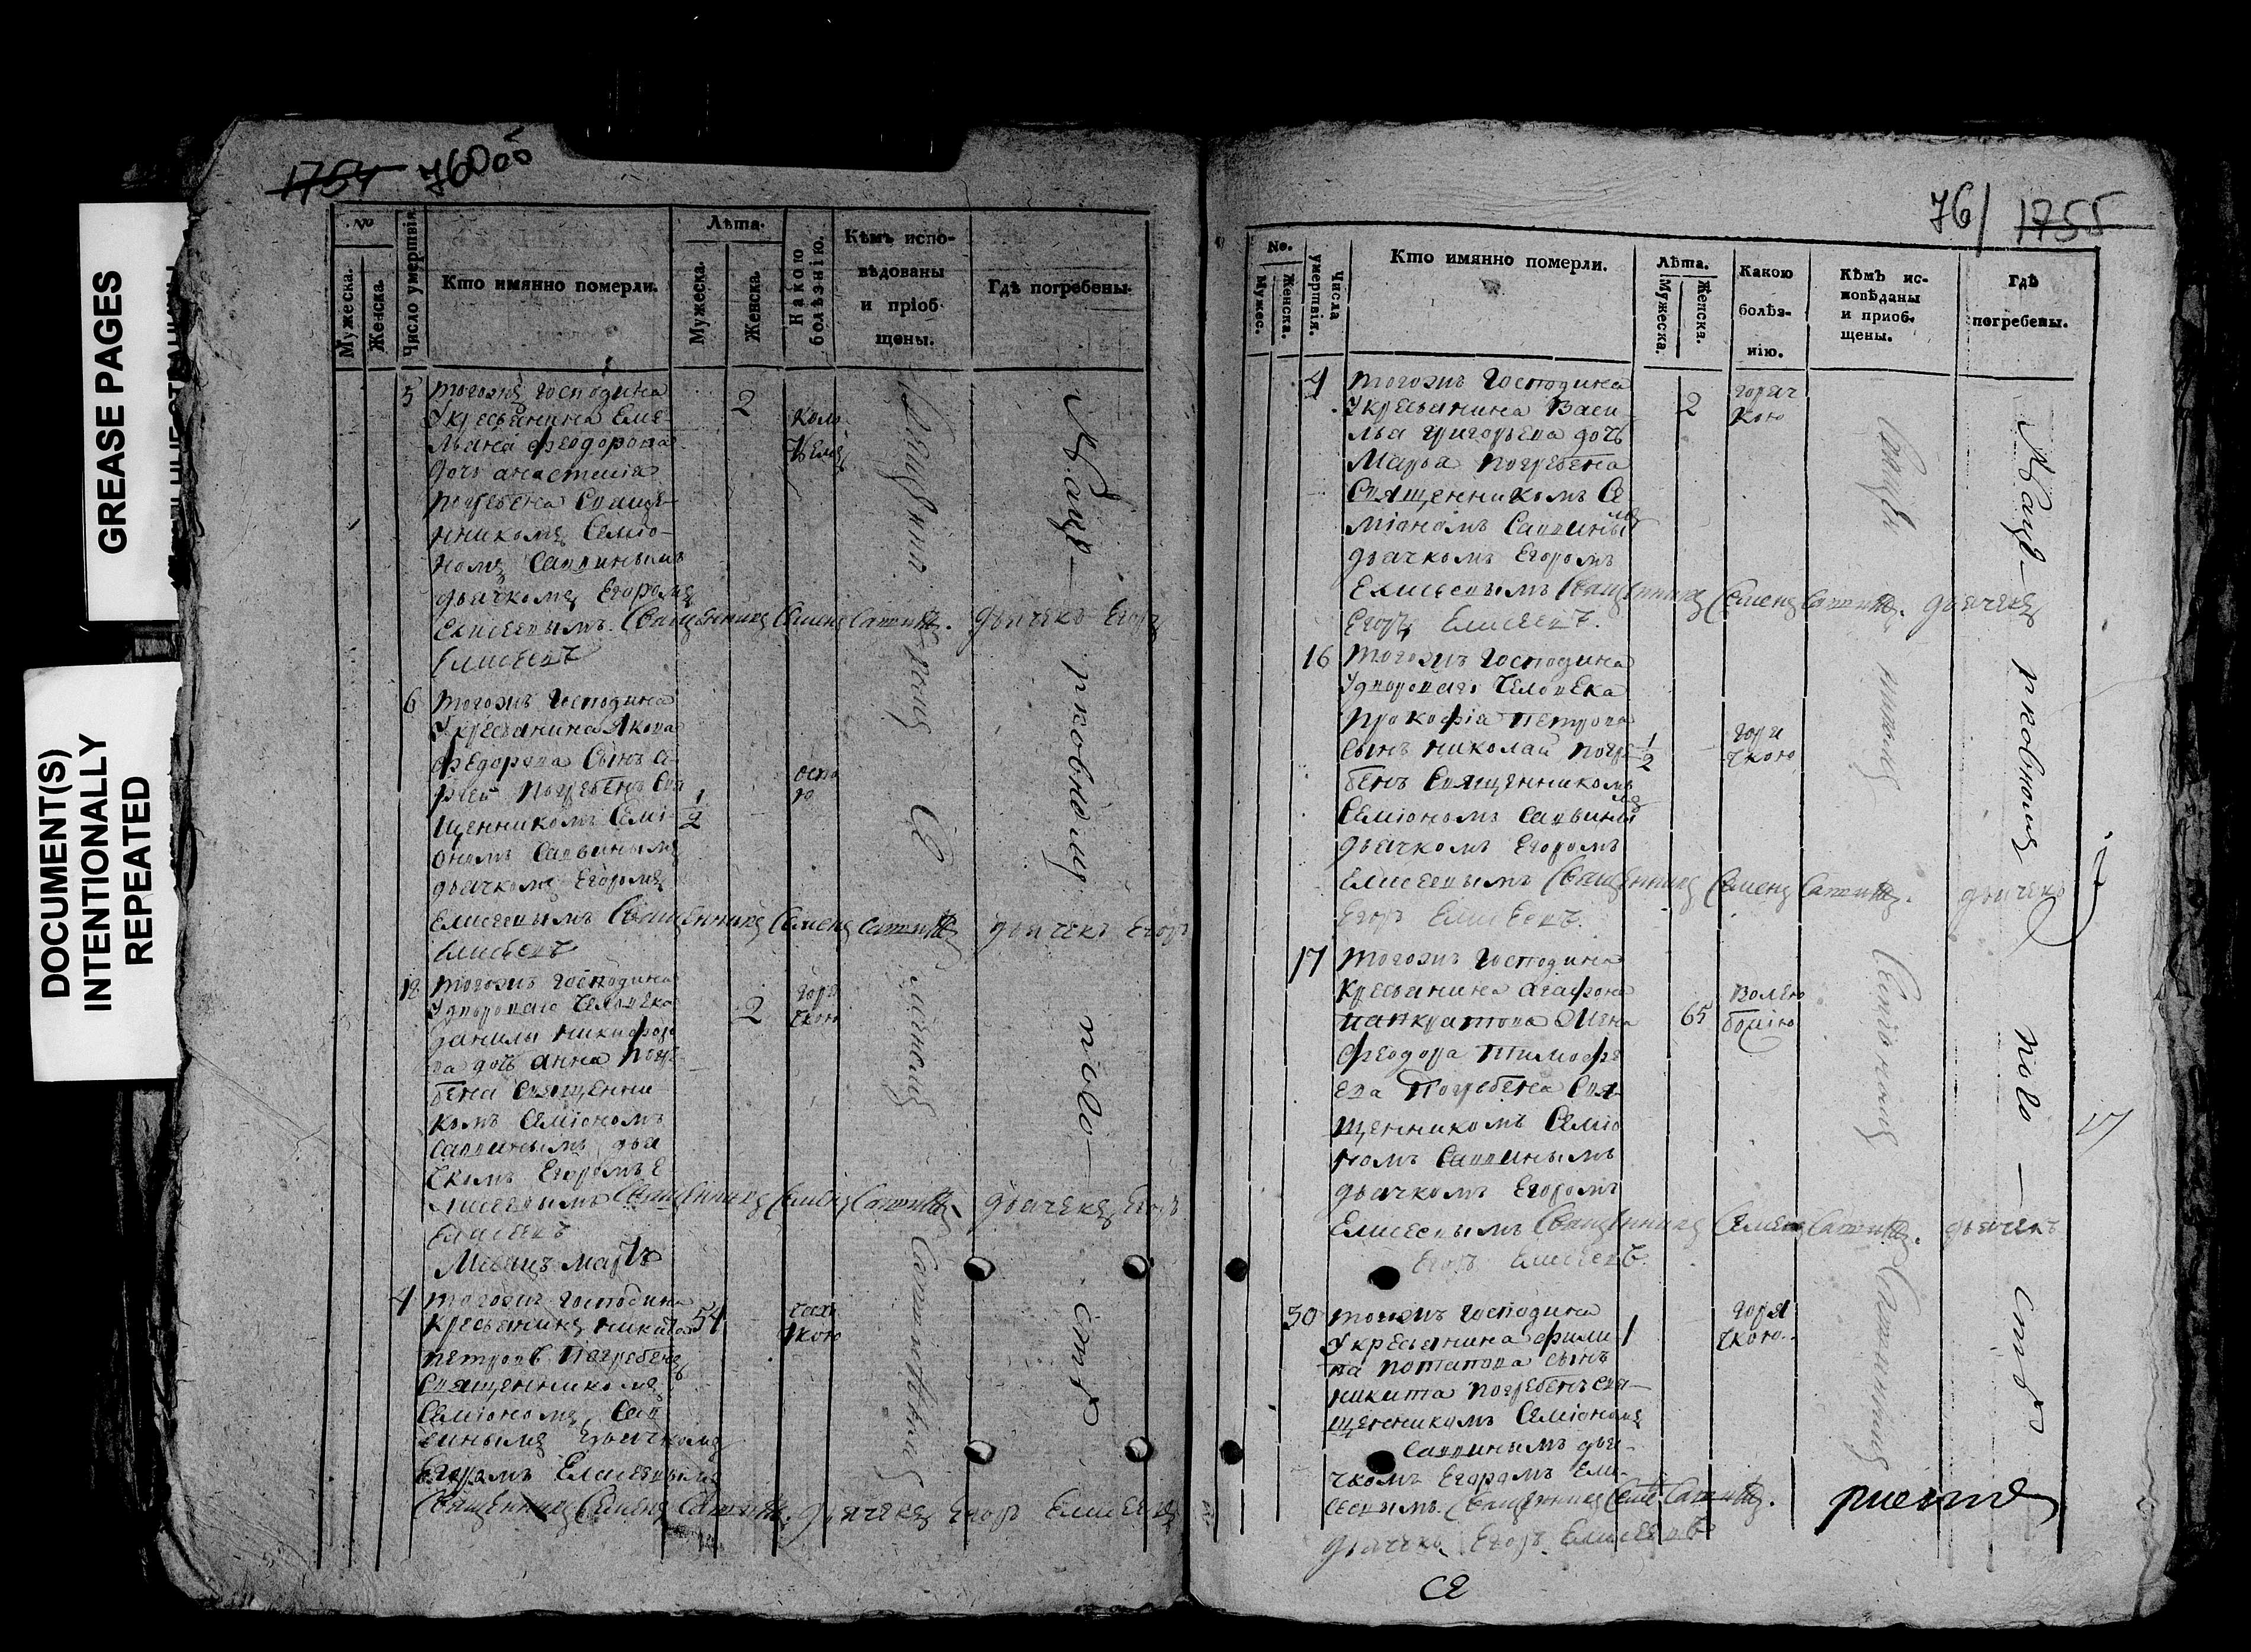 GREASE PAGES
DOCUMENT(S)
INTENTIONALLY
REPEATED
1754 76 об
№
Мужеска.
Женска.
Число умертвія.
Кто имянно померли.
Лѣта.
Мужеска.
Женска.
Какою
болѣзнію.
Кѣмъ испо-
вѣдованы
и пріоб-
щены.
Гдѣ погребены.
5 тогожъ господина
Укресьянина Еме- 2
льяна феодорова
дочь анастасія
погребена Свяще-
нникомъ Семіо-
номъ Саввинымъ
дьячкомъ Егоромъ
Елисеевымъ. Священникъ Семенъ дьячекъ Егоръ
Елисеевъ
6 тогожъ господина
Укресьянина Якова
федорова сынъ а-
погребенъ Свя 1/2
оспо
ю
щенникомъ Семі-
ономъ Саввинымъ
дьячкомъ Егоромъ
Елисеевымъ Священникъ Семенъ дьячекъ Егоръ
Елисеевъ
18 тогожъ господина
Удвороваго человека 2 горя
чкою
данилы никифоро
ва дочь анна погре
бена Священни-
комъ Семіономъ
Саввинымъ дья
чкомъ Егоромъ Е
лисеевымъ Священникъ Семенъ дьячекъ Егоръ
Елисеевъ
Месяцъ мартъ
4 тогожъ господина
Кресьянинъ никита 54
петровъ погребенъ
Священникомъ
Семіономъ Сав
винымъ дьячкомъ
Егоромъ Елисеевымъ
Священникъ Семенъ дьячекъ Егоръ Елисеевъ
Священникомъ Семіономъ
76 1755
No.
Мужес.
Женска.
Числа
умертвія.
Кто имянно померли.
Лѣта.
Мужеска.
Женска.
Какою
болѣз-
нію.
Кѣмъ ис-
повѣданы
и приоб-
щены.
Гдѣ
погребены.
4 тогожъ господина 2 горяч
Укресьянина Васи- кою
лья григорьева дочь
Марья погребена
Священникомъ Се
міономъ Саввинымъ
дьячкомъ Егоромъ
Елисеевымъ Священникъ Семенъ дьячекъ
Егоръ Елисеевъ.
16 тогожъ господина
Удвороваго человека
прокофіа петрова
сынъ николай погре 1/2 горя
чкою
бенъ Священникомъ
Семіономъ Саввинымъ
дьячкомъ Егоромъ
Елисеевымъ Священникъ Семенъ дьячекъ
Егоръ Елисеевъ.
17 тогожъ господина
Кресьянина агафона
панкратова жена 65
феодора тимофе
ева погребена Свя
щенникомъ Семіо
номъ Саввинымъ
дьячкомъ Егоромъ
Елисеевымъ Священникъ Семенъ дьячекъ
Егоръ Елисеевъ.
30 тогожъ господина горя
Укресьянина фили- 1 чкою
па потапова сынъ
никита погребенъ свя-
щенникомъ Семіономъ
Саввинымъ дья-
чкомъ Егоромъ Ели-
сеевымъ. Священникъ
дьячекъ Егоръ Елисеевъ